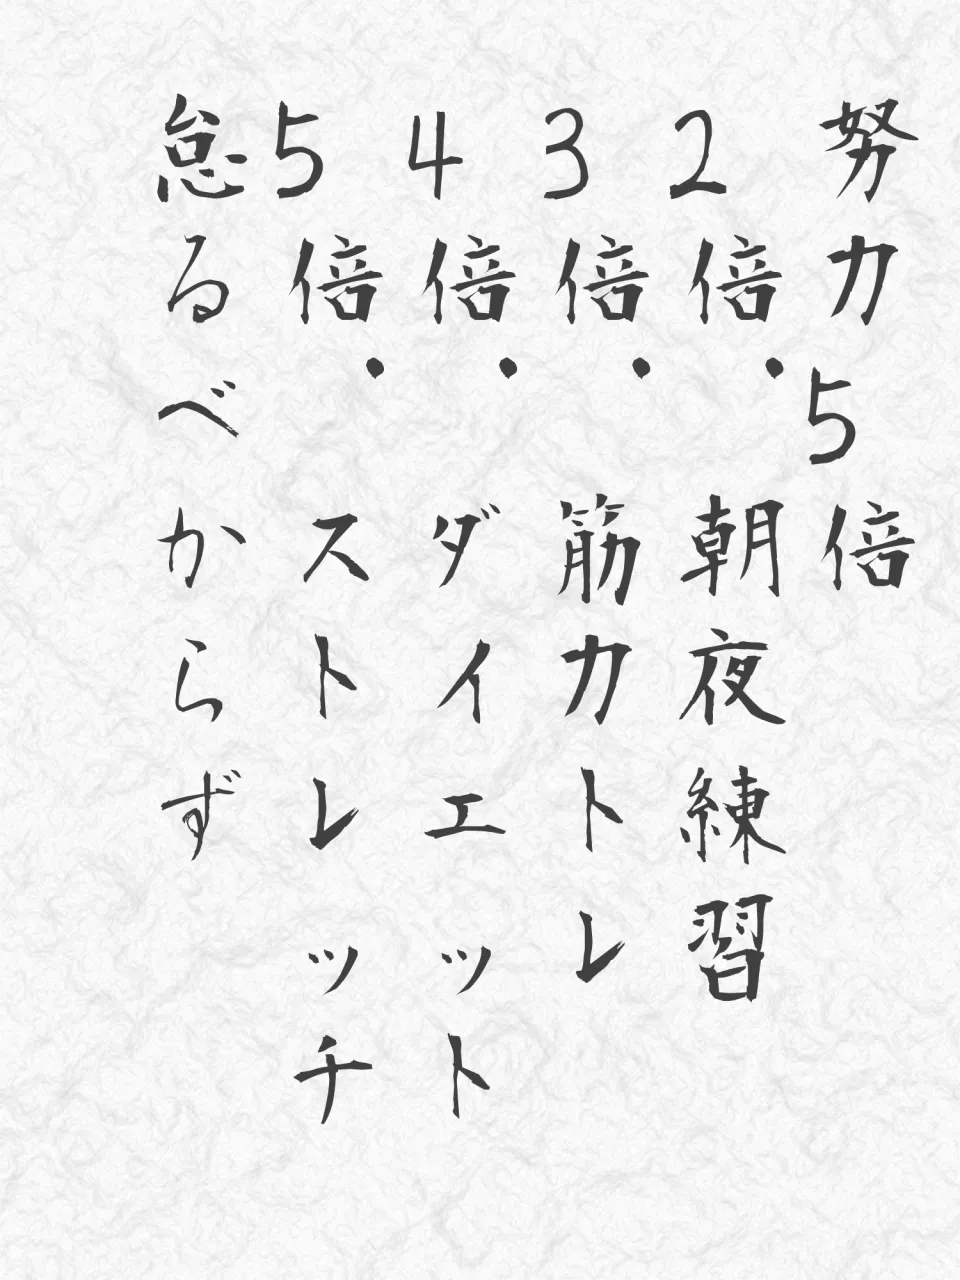 努力5倍
2倍・朝夜練習
3倍・筋力トレ
4倍・ダイエット
5倍・ストレッチ
怠るべからず